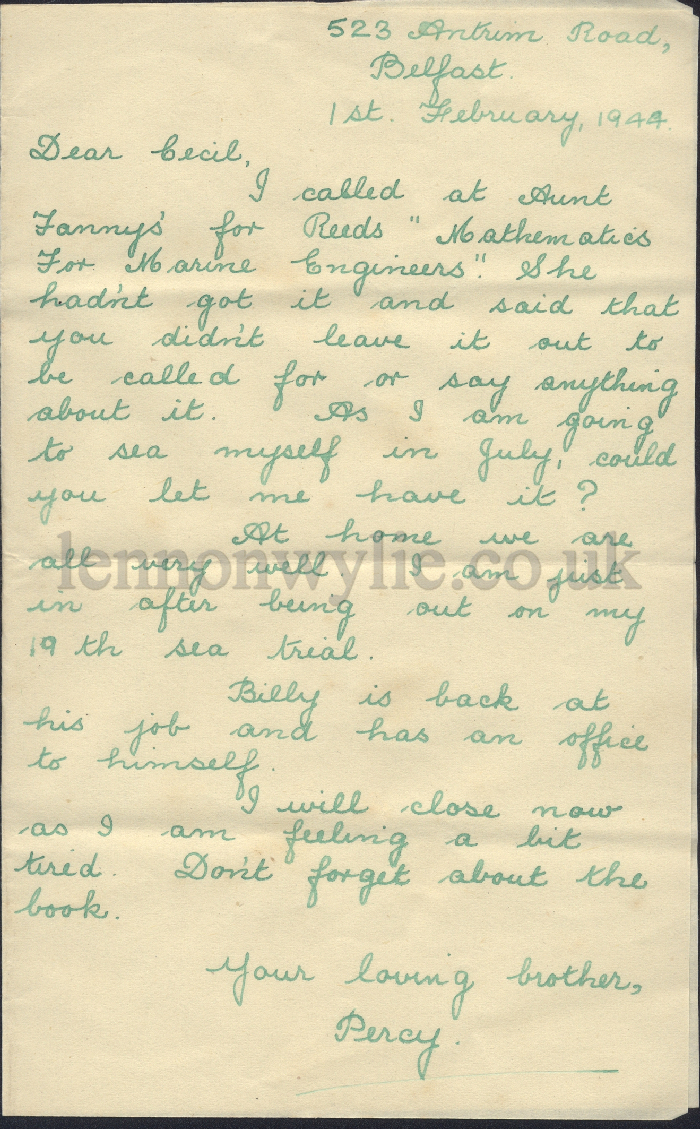 523 Antrim Road,
Belfast.
1st. February, 1944.
Dear Cecil,
I called at Aunt
Fanny's for Reeds "Mathematics
For Marine Engineers". She
hadn't got it and said that
you didn't leave it out to
be called for or say anything
about it. As I am going
to sea myself in July, could
you let me have it?
At home we are
all very well. I am just
in after being out on my
19th sea trial.
lennonwylie.co.uk
Billy is back at
his job and has an office
to himself.
I will close now
as I am feeling a bit
tired. Don't forget about the
book.
Your loving brother,
Percy.